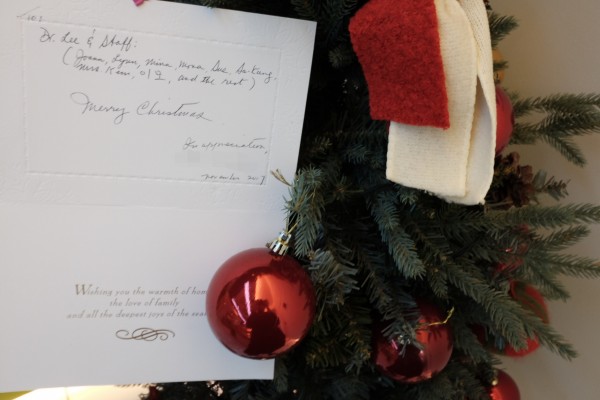 To:
Dr. Lee & Staff:
Lynn, Mina, Mona
Mrs. Kim, 이모, and the rest)
Merry Christmas
In appreciation,
Wishing you the warmth of home
the love of family
and all the deepest joys of the